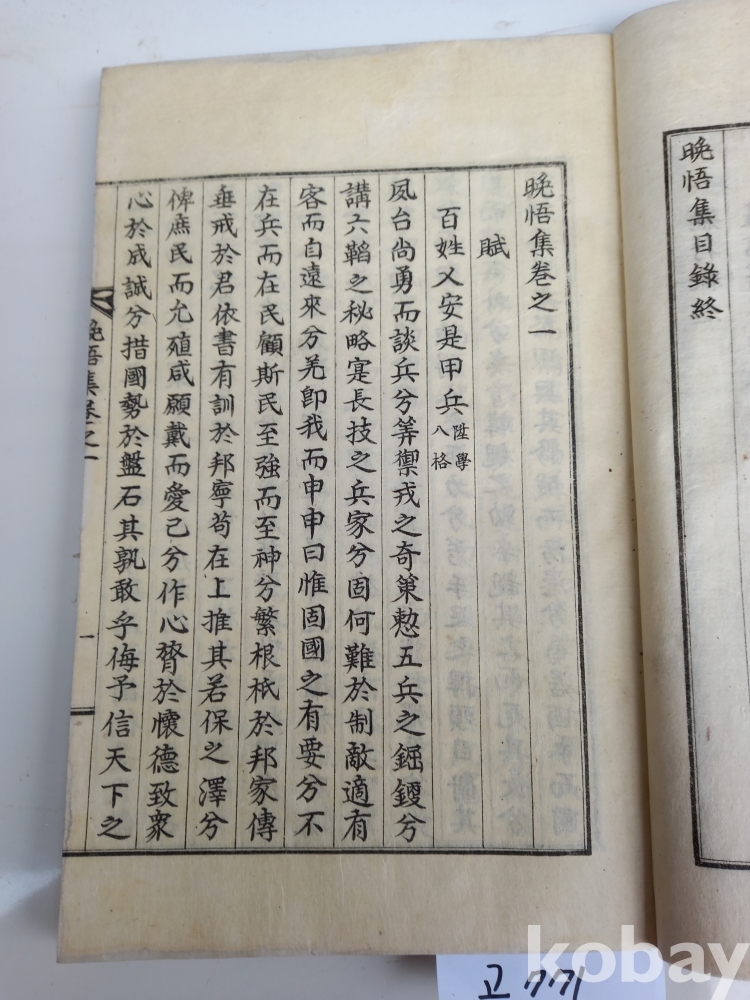 晚悟集目錄終
晚悟集卷之一
賦
百姓乂安是甲兵 陞學八格
夙台尚勇而談兵兮筭禦戎之奇策愸五兵之鋸鍐兮
講六韜之秘略寔長技之兵家兮固何難於制敵適有
客而自遠來兮羌卽我而申申曰惟固國之有要兮不
在兵而在民顧斯民至強而至神兮繁根柢於邦家傳
垂戒於君依書有訓於邦寧苟在上推其若保之澤兮
俾庶民而允殖咸願戴而愛己兮作心膂於懷德致衆
心於成誠兮措國勢於盤石其孰敢乎侮予信天下之
晚悟集卷之一
一
고 771
kobay